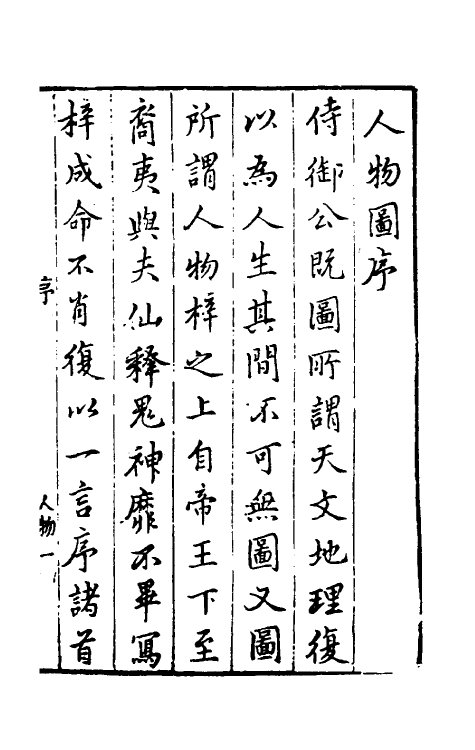 人物圖序
侍御公既圖所謂天文地理復
以為人生其間不可無圖又圖
所謂人物梓之上自帝王下至
裔夷與夫仙釋鬼神靡不畢寫
梓成命不肖復以一言序諸首
序
人物一